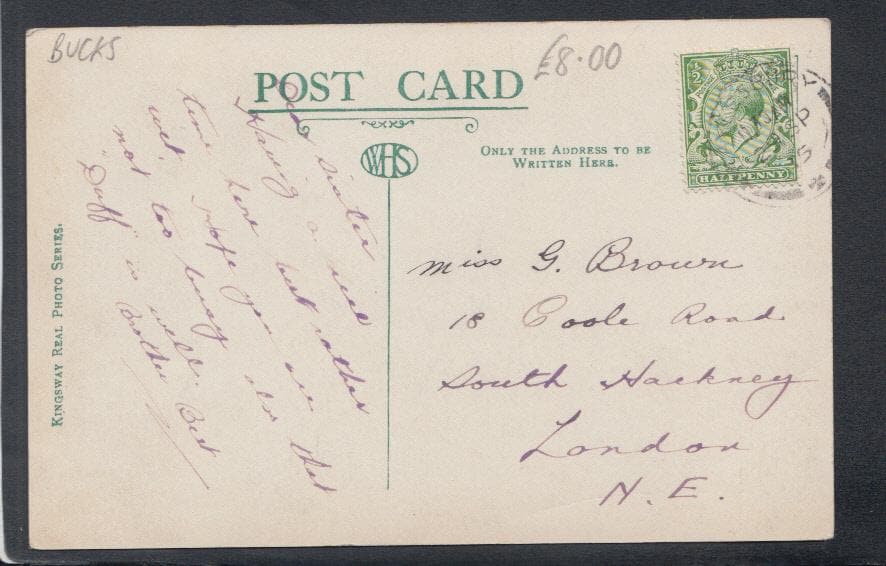 BUCKS
£8.00
POST CARD
WHS
ONLY THE ADDRESS TO BE
WRITTEN HERE.
HALFPENNY
KINGSWAY REAL PHOTO SERIES.
Dear sister
Having a nice
time here but rather
wet. Hope you are
not too busy or that
"Duff" is well. Best
Brother
Miss G. Brown
18 Poole Road
South Hackney
London
N. E.